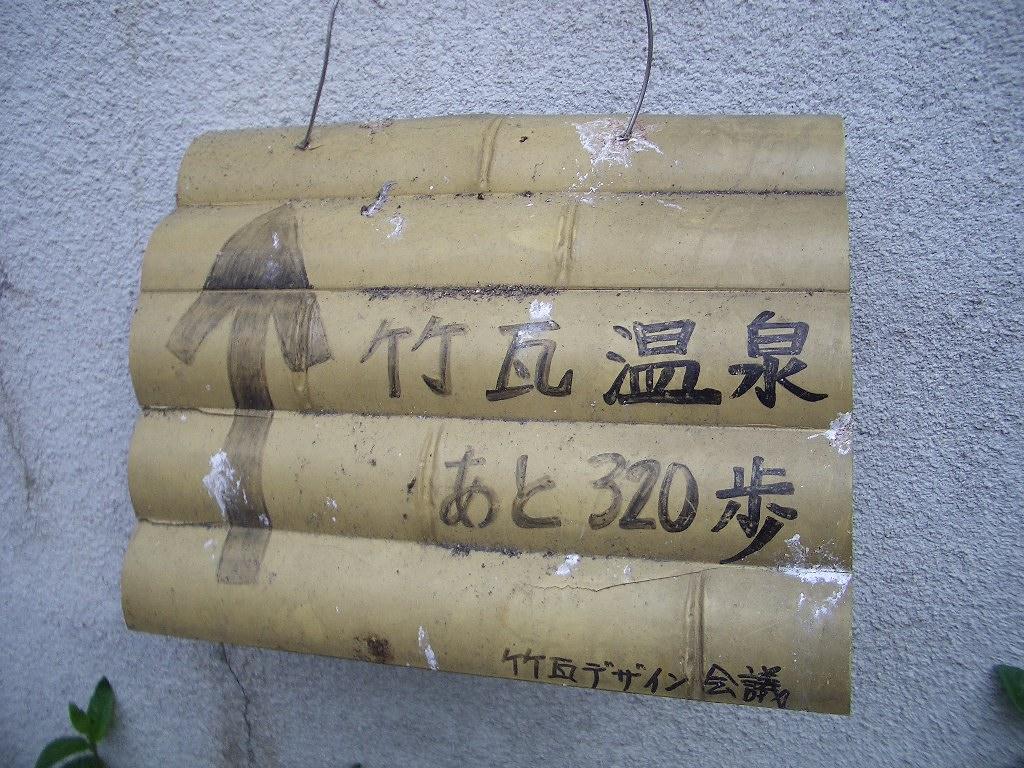 竹瓦温泉
あと320歩
竹瓦デザイン会議